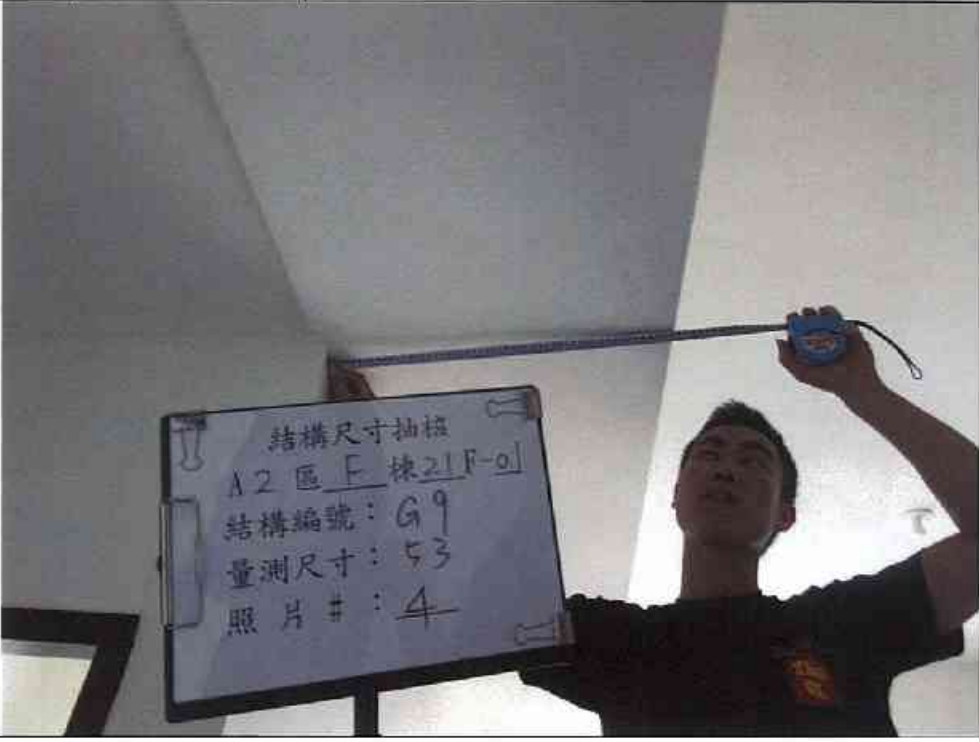 結構尺寸抽檢
A2區 F 棟21F-01
結構編號：G9
量測尺寸：53
照片#：4